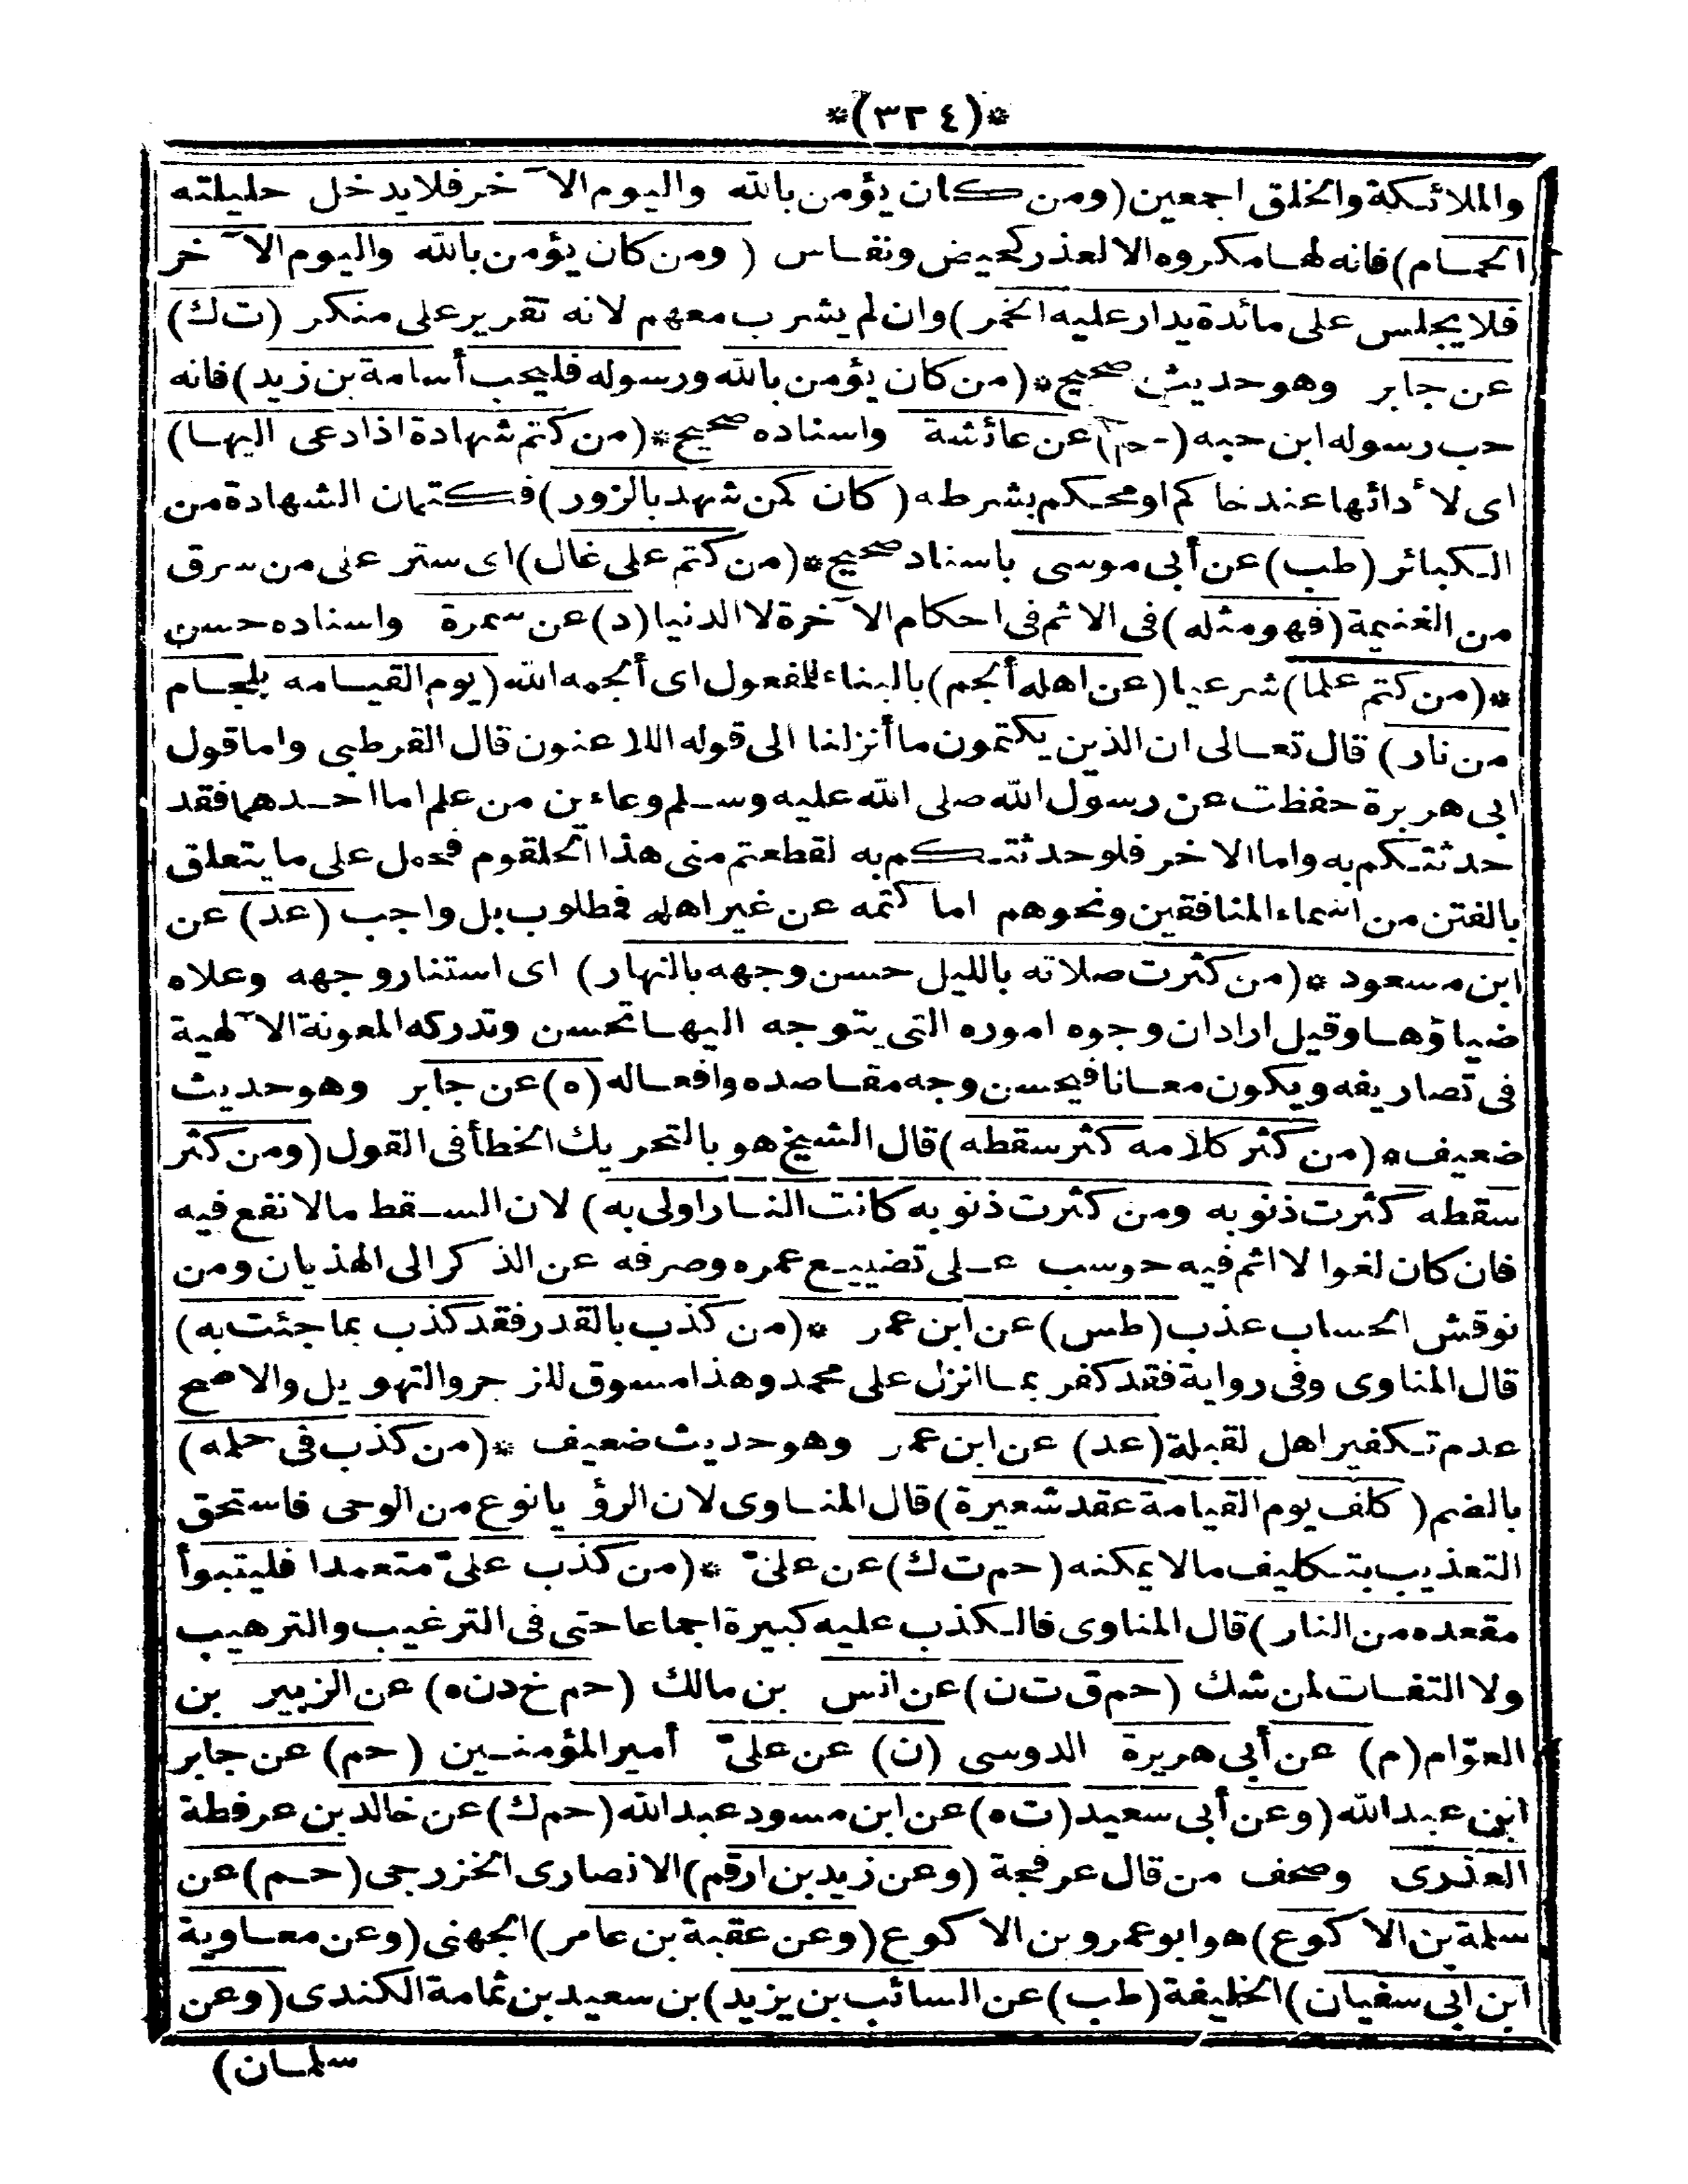 *(٣٣٤)*
والملائكة والخلق اجمعين (ومن كان يؤمن بالله واليوم الآخر فلا يدخل حليلته
الحمام) فانه لها مكروه الا لعذر كحيض ونفاس (ومن كان يؤمن بالله واليوم الآخر
فلا يجلس على مائدة يدار عليه الخمر) وان لم يشرب معهم لانه تقرير على منكر (ت ك)
عن جابر وهو حديث صحيح *(من كان يؤمن بالله ورسوله فليحب أسامة بن زيد) فانه
حب رسوله ابن حبه (حم) عن عائشة واسناده صحيح *(من كتم شهادة اذا دعى اليها)
اى لأدائها عند حاكم او محكم بشرطه (كان كمن شهد بالزور) فكتمان الشهادة من
الكبائر (طب) عن أبى موسى باسناد صحيح *(من كتم على غال) اى ستر على من سرق
من الغنيمة (فهو مثله) فى الاثم فى احكام الآخرة لا الدنيا (د) عن سمرة واسناده حسن
*(من كتم علما) شرعيا (عن اهله ألجم) بالبناء للمفعول اى ألجمه الله (يوم القيامه بلجام
من نار) قال تعالى ان الذين يكتمون ما أنزلنا الى قوله اللاعنون قال القرطبى واما قول
ابى هريرة حفظت عن رسول الله صلى الله عليه وسلم وعاءين من علم اما احدهما فقد
حدثتكم به واما الاخر فلو حدثتكم به لقطعتم منى هذا الحلقوم فحمل على ما يتعلق
بالفتن من اسماء المنافقين ونحوهم اما كتمه عن غير اهله فمطلوب بل واجب (عد) عن
ابن مسعود *(من كثرت صلاته بالليل حسن وجهه بالنهار) اى استنار وجهه وعلاه
ضياؤها وقيل اراد ان وجوه اموره التى يتوجه اليها تحسن وتدركه المعونة الآلهية
فى تصاريفه ويكون معانا فيحسن وجه مقاصده وافعاله (ه) عن جابر وهو حديث
ضعيف *(من كثر كلامه كثر سقطه) قال الشيخ هو بالتحريك الخطأ فى القول (ومن كثر
سقطه كثرت ذنوبه ومن كثرت ذنوبه كانت النار اولى به) لان السقط مالا نفع فيه
فان كان لغوا لا اثم فيه حوسب على تضييع عمره وصرفه عن الذكر الى الهذيان ومن
نوقش الحساب عذب (طس) عن ابن عمر *(من كذب بالقدر فقد كذب بما جئت به)
قال المناوى وفى رواية فقد كفر بما انزل على محمد وهذا مسوق للزجر والتهويل والاصح
عدم تكفير اهل لقبلة (عد) عن ابن عمر وهو حديث ضعيف *(من كذب فى حلمه)
بالضم (كلف يوم القيامة عقد شعيرة) قال المناوى لان الرؤيا نوع من الوحى فاستحق
التعذيب بتكليف مالا يمكنه (حم ت ك) عن علىّ *(من كذب علىّ متعمدا فليتبوأ
مقعده من النار) قال المناوى فالكذب عليه كبيرة اجماعا حتى فى الترغيب والترهيب
ولا التفات لمن شك (حم ق ت ن) عن انس بن مالك (حم خ د ن ه) عن الزبير بن
العوّام (م) عن أبى هريرة الدوسى (ن) عن علىّ أمير المؤمنين (حم) عن جابر
ابن عبد الله (وعن أبى سعيد (ت ه) عن ابن مسود عبد الله (حم ك) عن خالد بن عرفطة
العذرى وصحف من قال عرفجة (وعن زيد بن ارقم) الانصارى الخزرجى (حم) عن
سلمة بن الاكوع) هو ابو عمرو بن الاكوع (وعن عقبة بن عامر) الجهنى (وعن معاوية
ابن ابى سفيان) الخليفة (طب) عن السائب بن يزيد) بن سعيد بن ثمامة الكندى (وعن
سلمان)